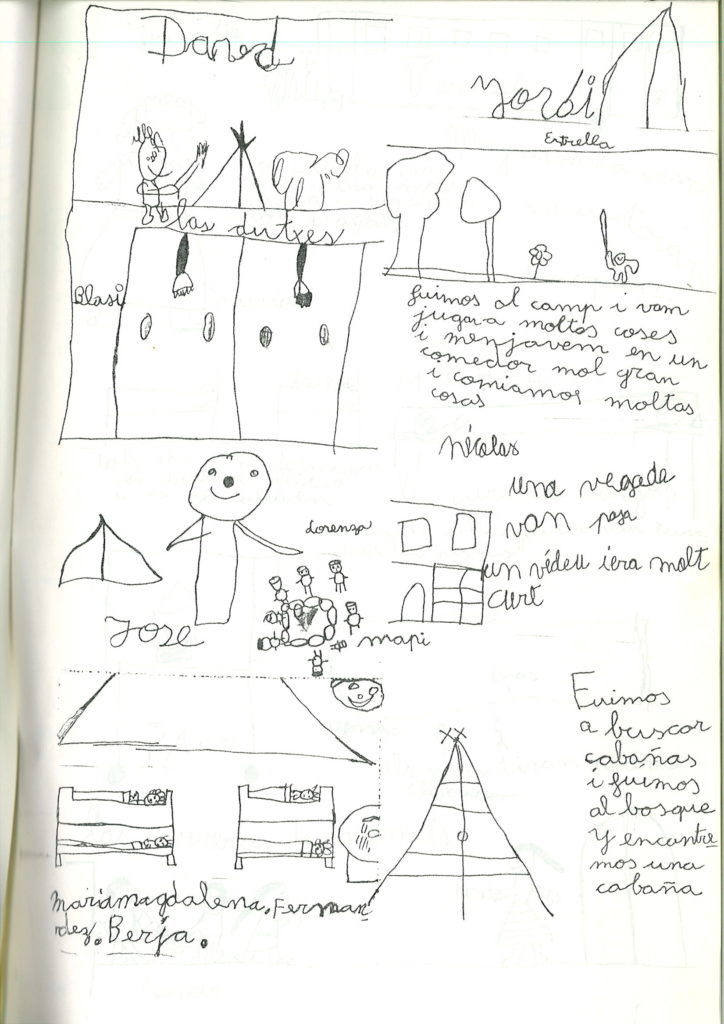 David
Yordi
Estrella
las dutxes
Blasi
fuimos al camp i vam
jugara moltas coses
i menjavem en un
comedor mol gran
i comiamos moltas
cosas
Nicolas
una vegada
van pasa
un vídeu iera molt
curt
Lorenza
Jose
mapi
Fuimos
a buscar
cabañas
i fuimos
al bosque
Y encontre
mos una
cabaña
mariamagdalena. Fernan
dez. Berja.